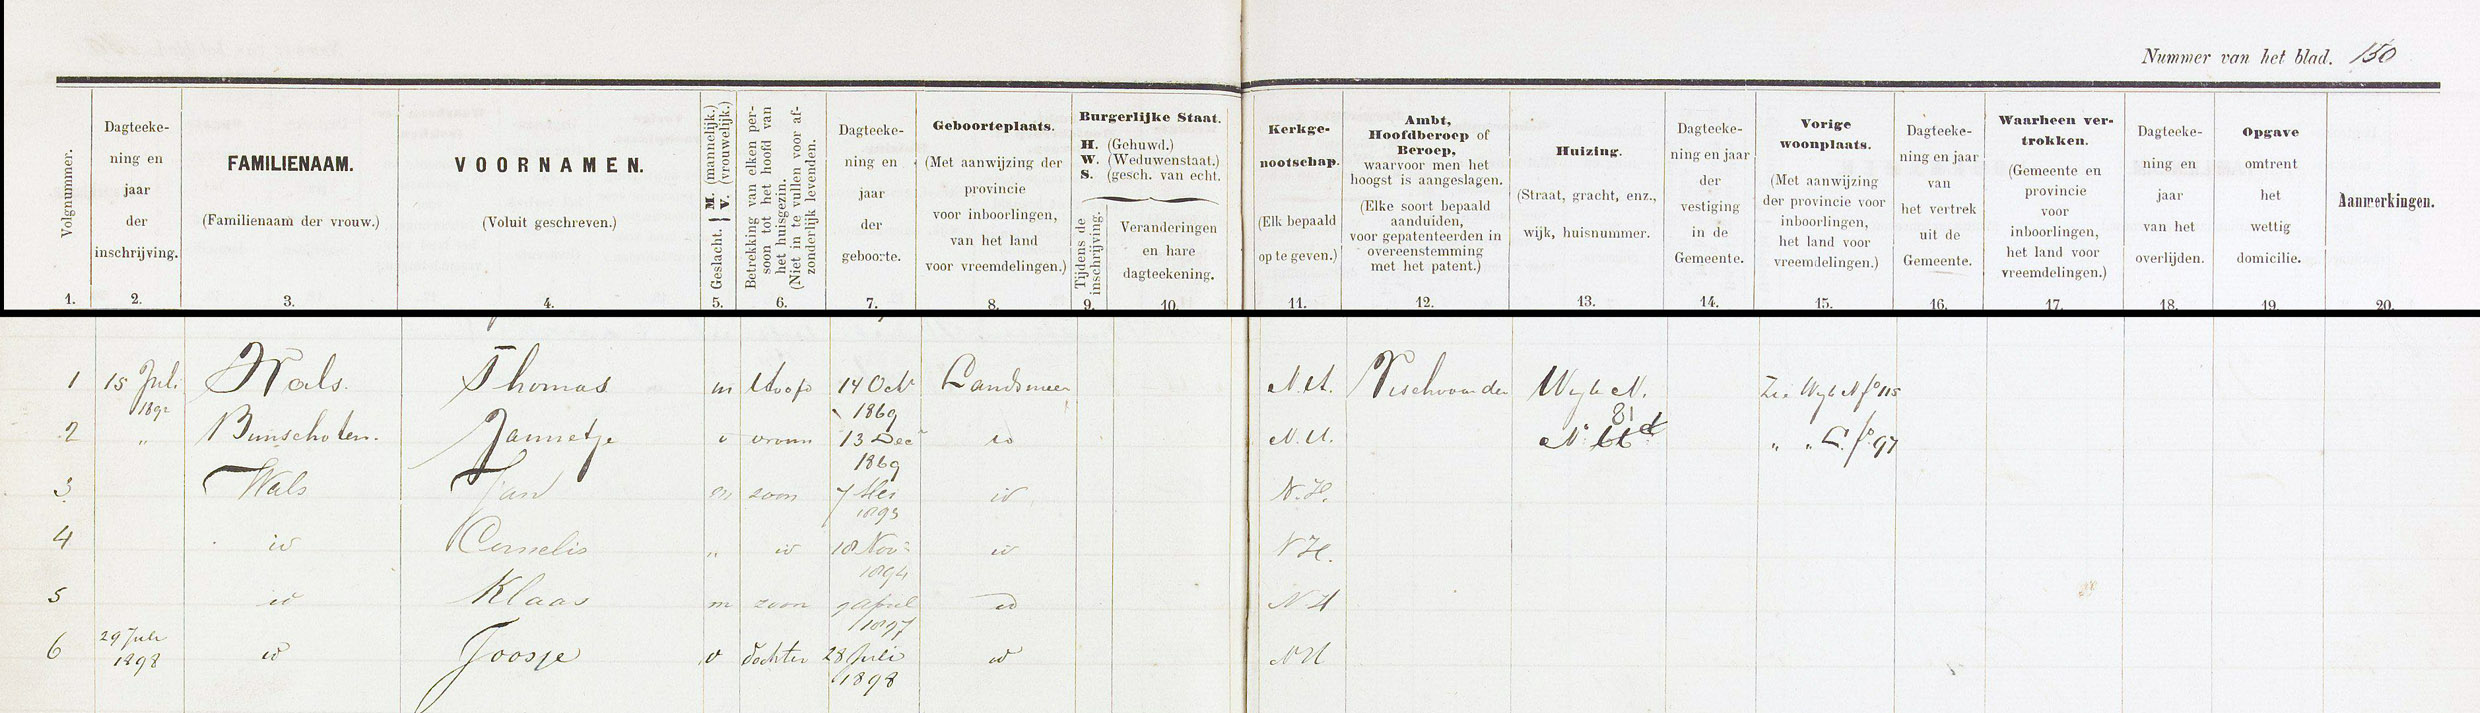 Nummer van het blad. 150
Volgnummer.
1.
Dagteeke-
ning en
jaar
der
inschrijving.
2.
FAMILIENAAM.
(Familienaam der vrouw.)
3.
VOORNAMEN.
(Voluit geschreven.)
4.
Geslacht. { M. (mannelijk.)
V. (vrouwelijk.)
5.
Betrekking van elken per-
soon tot het hoofd van
het huisgezin.
(Niet in te vullen voor af-
zonderlijk levenden.
6.
Dagteeke-
ning en
jaar
der
geboorte.
7.
Geboorteplaats.
(Met aanwijzing der
provincie
voor inboorlingen,
van het land
voor vreemdelingen.)
8.
Burgerlijke Staat.
H. (Gehuwd.)
W. (Weduwenstaat.)
S. (gesch. van echt.
Tijdens de
inschrijving.
9.
Veranderingen
en hare
dagteekening.
10.
Kerkge-
nootschap.
(Elk bepaald
op te geven.)
11.
Ambt,
Hoofdberoep of
Beroep,
waarvoor men het
hoogst is aangeslagen.
(Elke soort bepaald
aanduiden,
voor gepatenteerden in
overeenstemming
met het patent.)
12.
Huizing.
(Straat, gracht, enz.,
wijk, huisnummer.
13.
Dagteeke-
ning en jaar
der
vestiging
in de
Gemeente.
14.
Vorige
woonplaats.
(Met aanwijzing
der provincie voor
inboorlingen,
het land voor
vreemdelingen.)
15.
Dagteeke-
ning en jaar
van
het vertrek
uit de
Gemeente.
16.
Waarheen ver-
trokken.
(Gemeente en
provincie
voor
inboorlingen,
het land voor
vreemdelingen.)
17.
Dagteeke-
ning en
jaar
van het
overlijden.
18.
Opgave
omtrent
het
wettig
domicilie.
19.
Aanmerkingen.
20.
1 15 Juli 1892 Wals. Thomas m Hoofd 14 Oct 1869 Landsmeer N.H. Vischvoerder Wyk N. Zie Wyk N fo 115
2 " Bunschoten. Jannetje v vrouw 13 Dec 1869 id N.H. No 81 " " C. fo 97
3 Wals Jan m zoon 7 Mei 1893 id N.H.
4 id Cornelis " id 18 Nov 1894 id N H.
5 id Klaas m zoon 9 April 1897 id N H
6 29 Juli 1898 id Joosje v dochter 28 Juli 1898 id N H